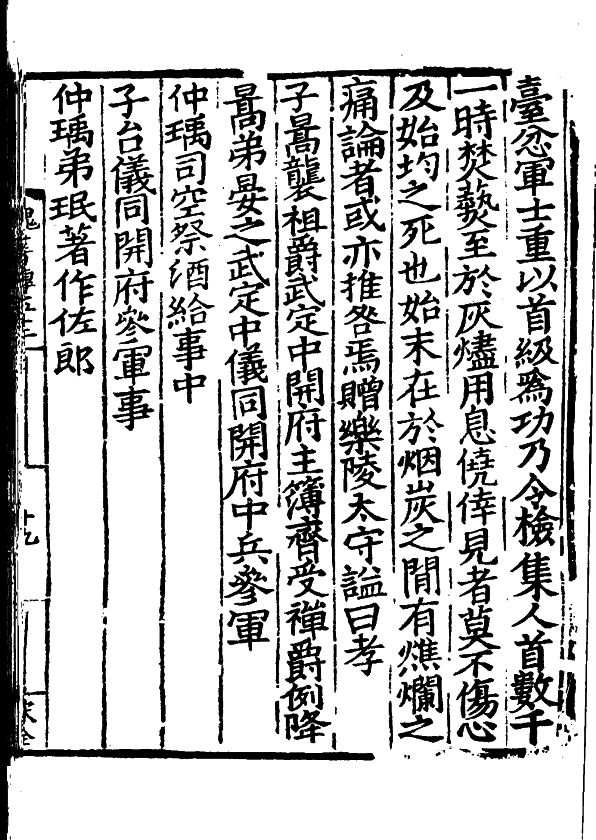 臺忿軍士重以首級爲功乃令檢集人首數千
一時焚爇至於灰燼用息僥倖見者莫不傷心
及始均之死也始末在於烟炭之間有燋爛之
痛論者或亦推咎焉贈樂陵太守謚曰孝
子暠襲祖爵武定中開府主簿齊受禪爵例降
暠弟晏之武定中儀同開府中兵參軍
仲瑀司空祭酒給事中
子台儀同開府參軍事
仲瑀弟珉著作佐郎
魏書傳五十二
十九